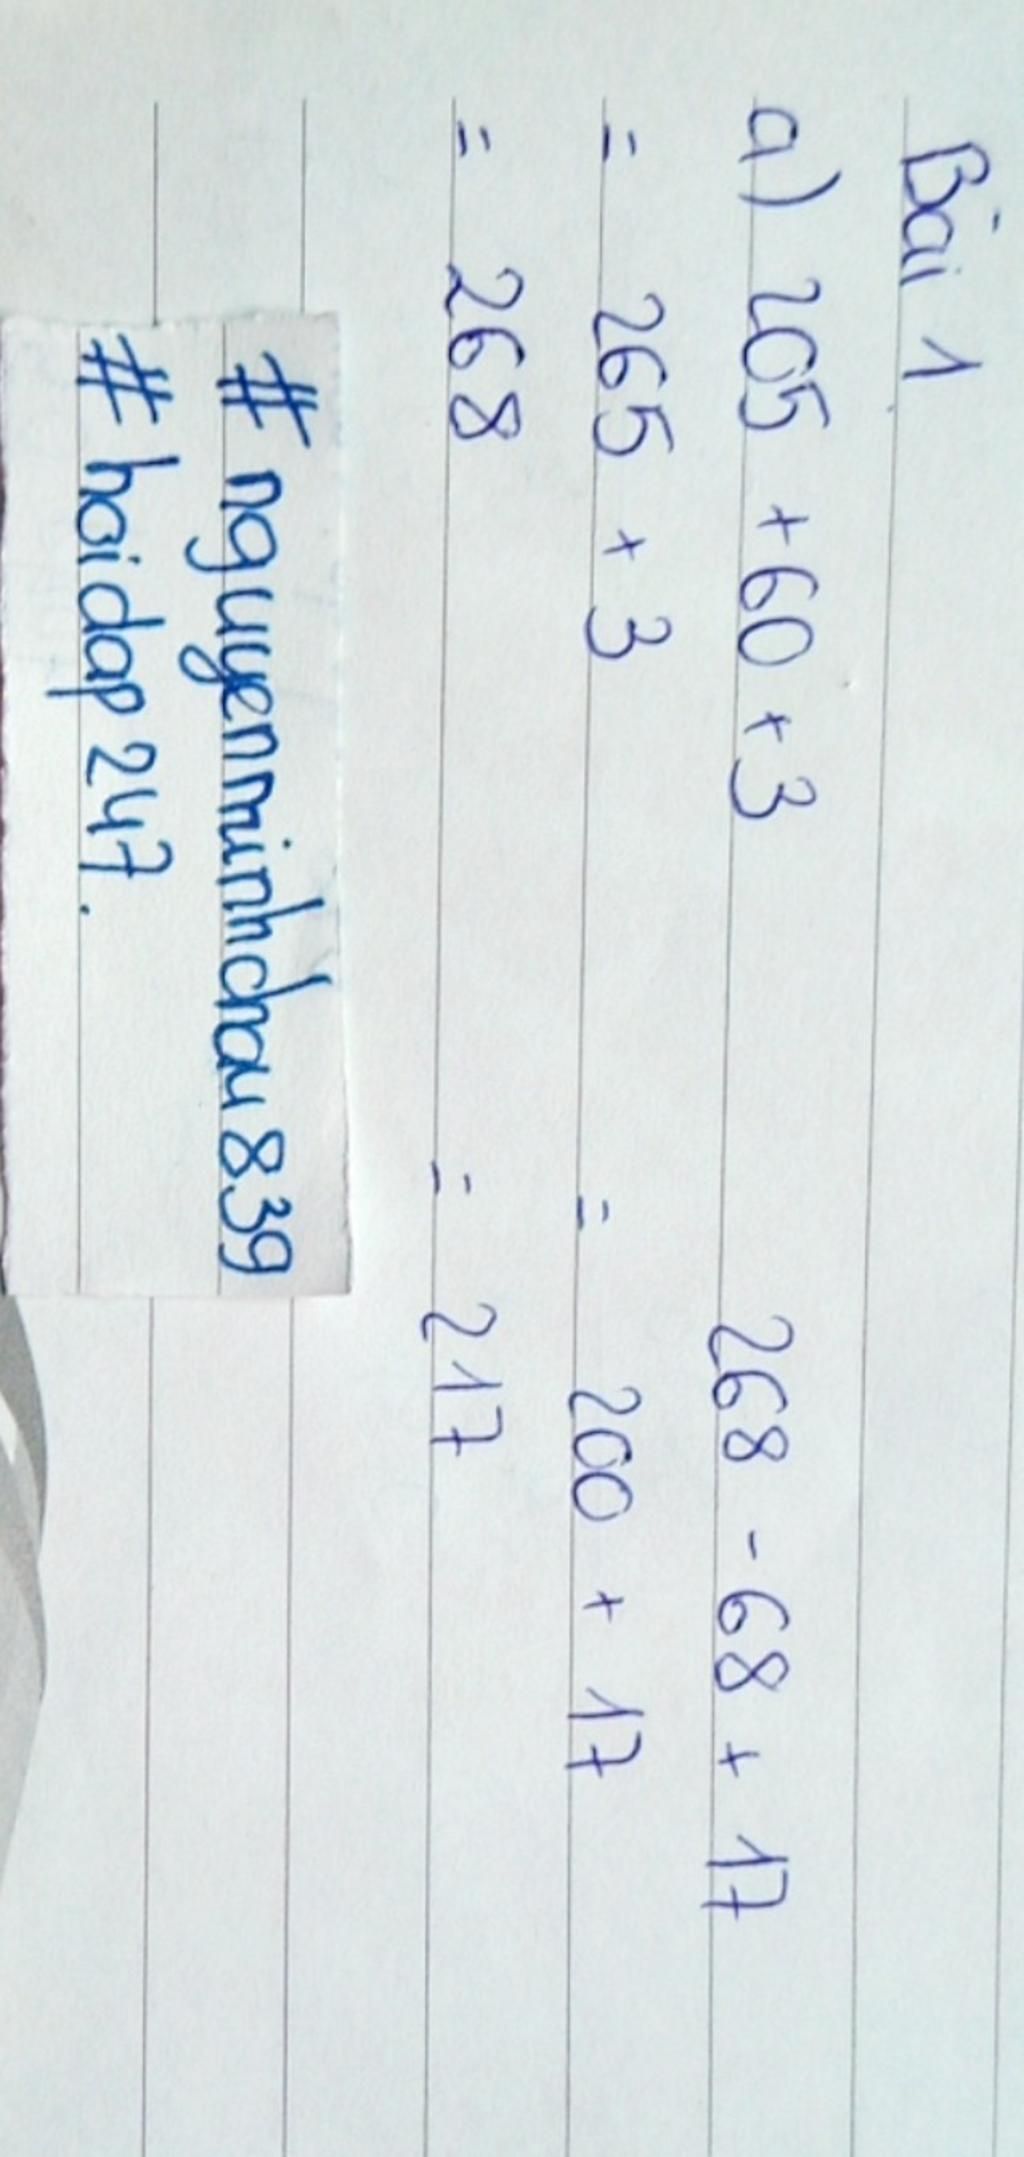 Bài 1
a) 205 + 60 + 3 268 - 68 + 17
= 265 + 3 = 200 + 17
= 268 = 217
# nguyenminhchau839
# hoidap247.